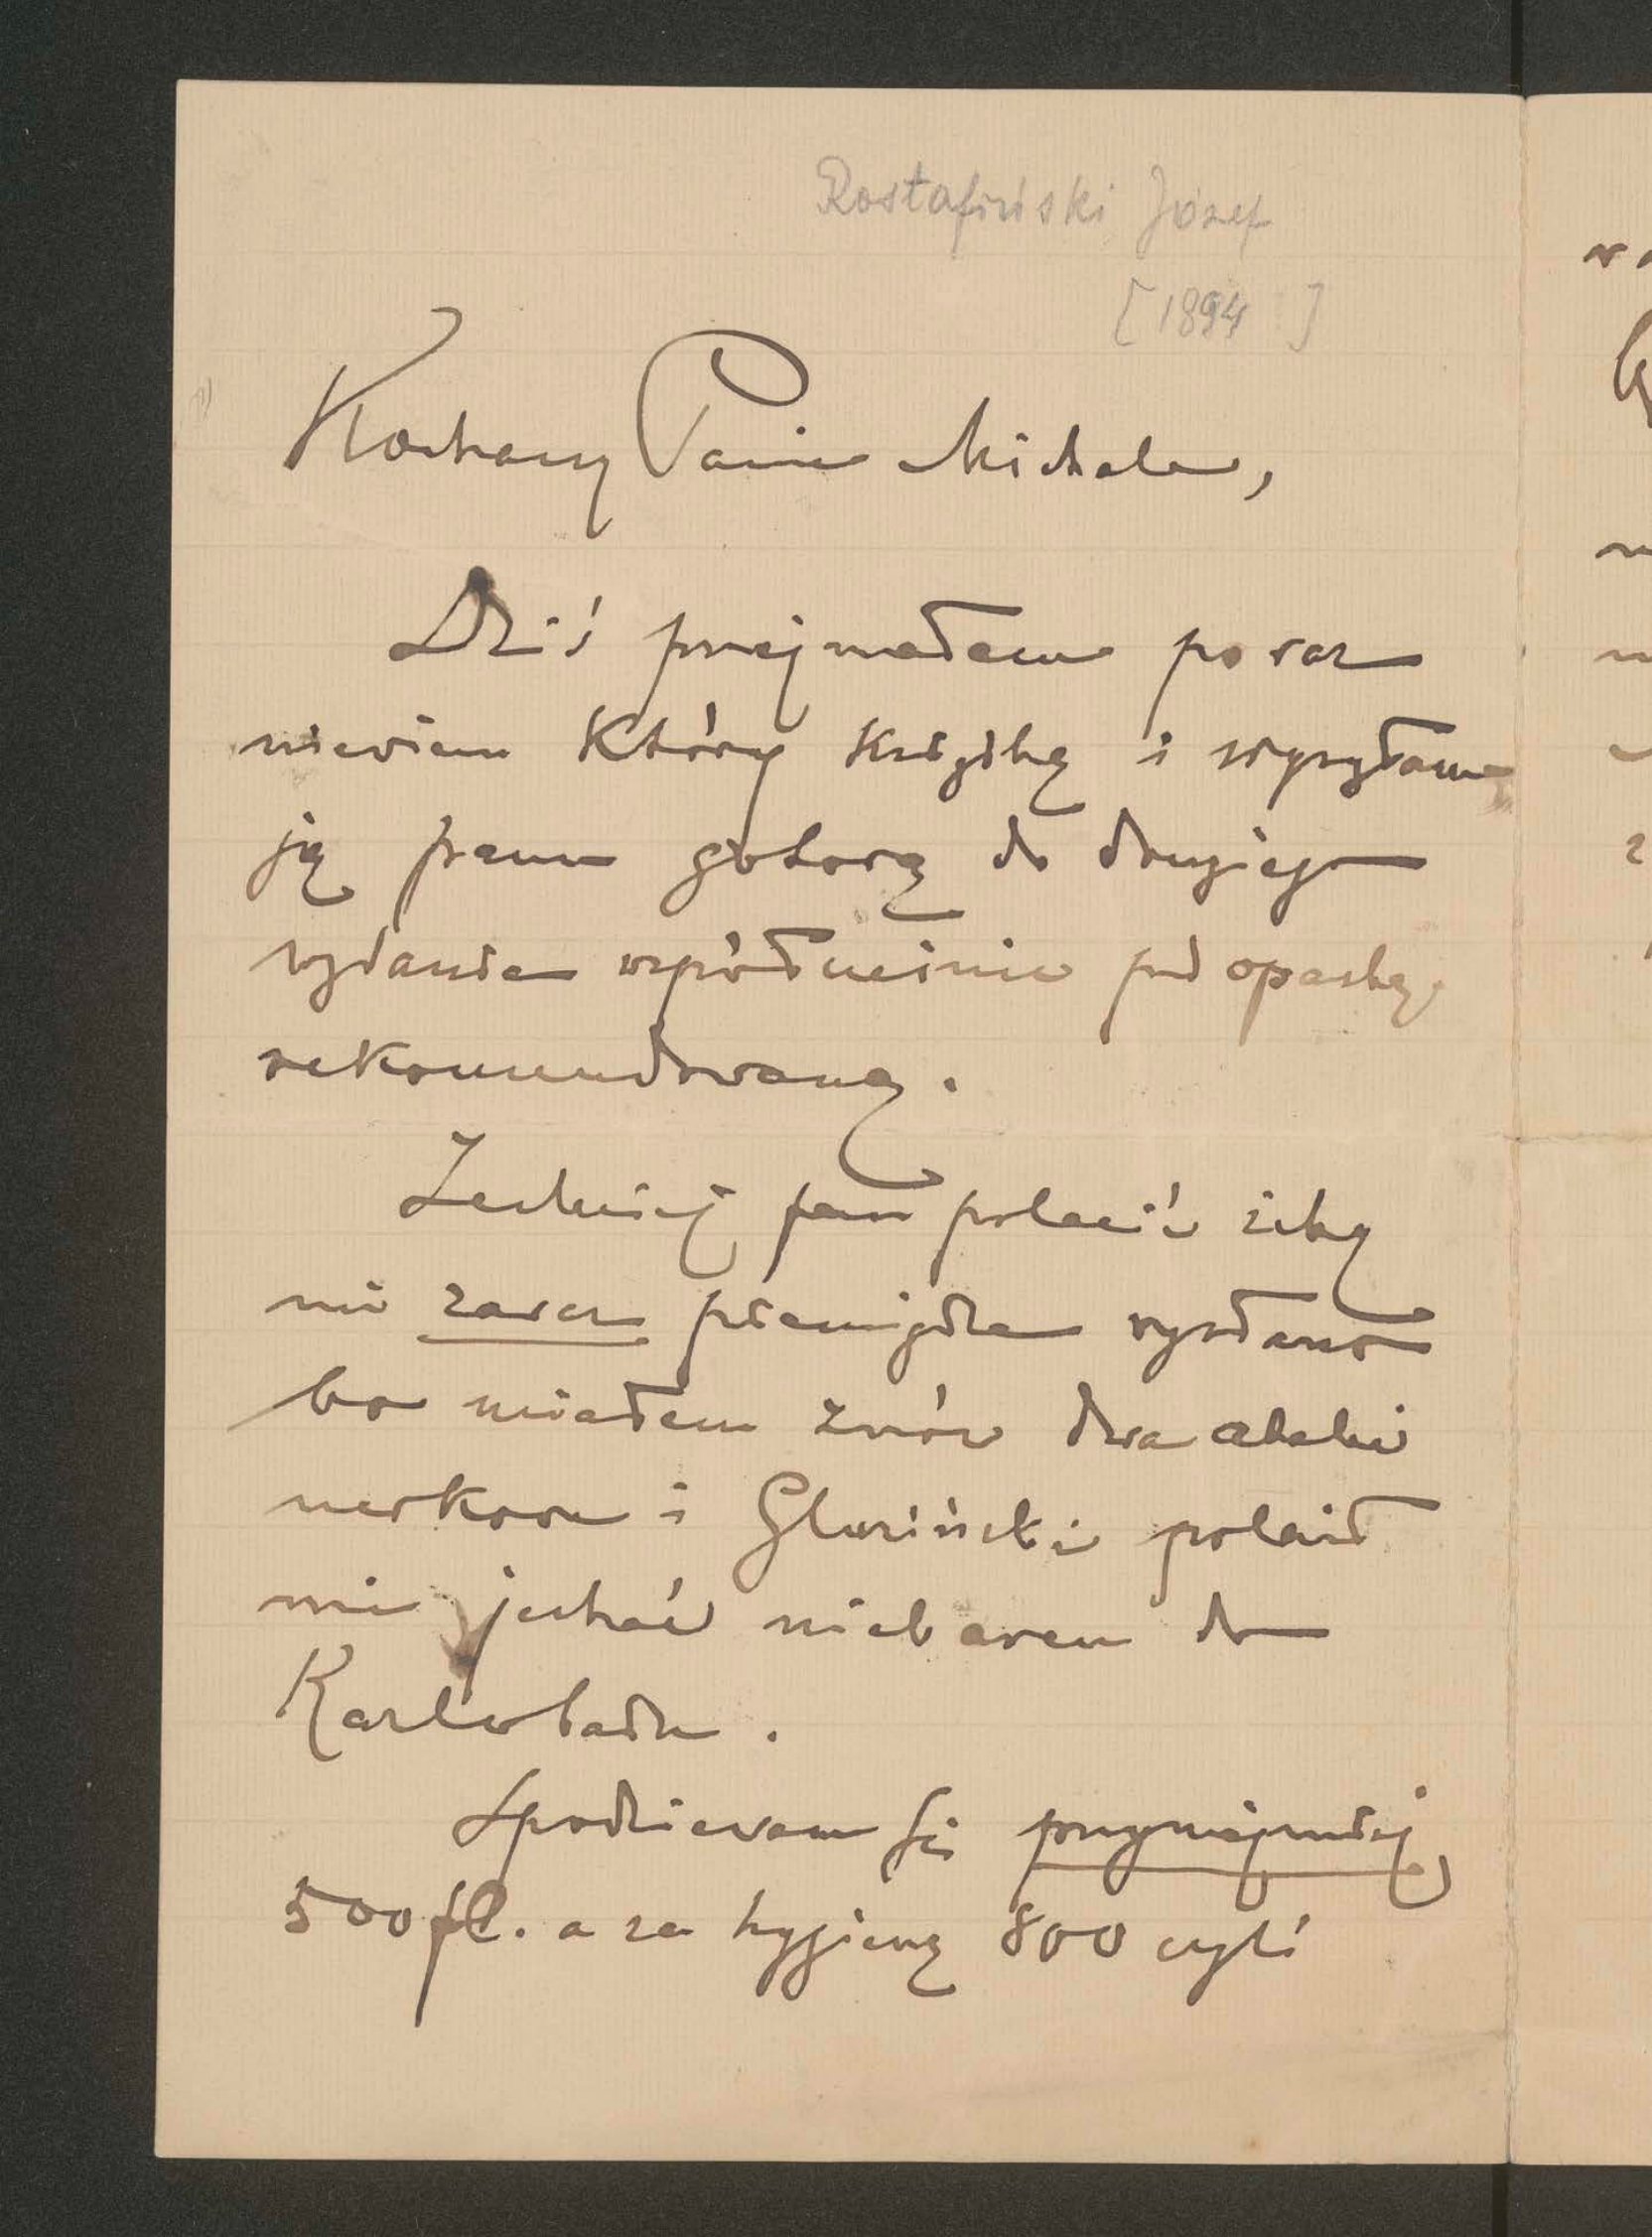 Rostafiński Józef
[1894 ]
Kochany Panie Michale,
Dziś przejrzałem po raz
niewiem który książkę i wysyłam
ją panu gotową do drugiego
wydania współcześnie pod opaską
rekomendowaną.
Zechciej pan polecić żeby
mi zaraz pieniądze wysłano
bo miałem znów dwa ataki
nerkowe i Gluziński polecił
mi jechać niebawem do
Karlsbadu.
Spodziewam się przynajmniej
500 fl. a za hygienę 800 czyli